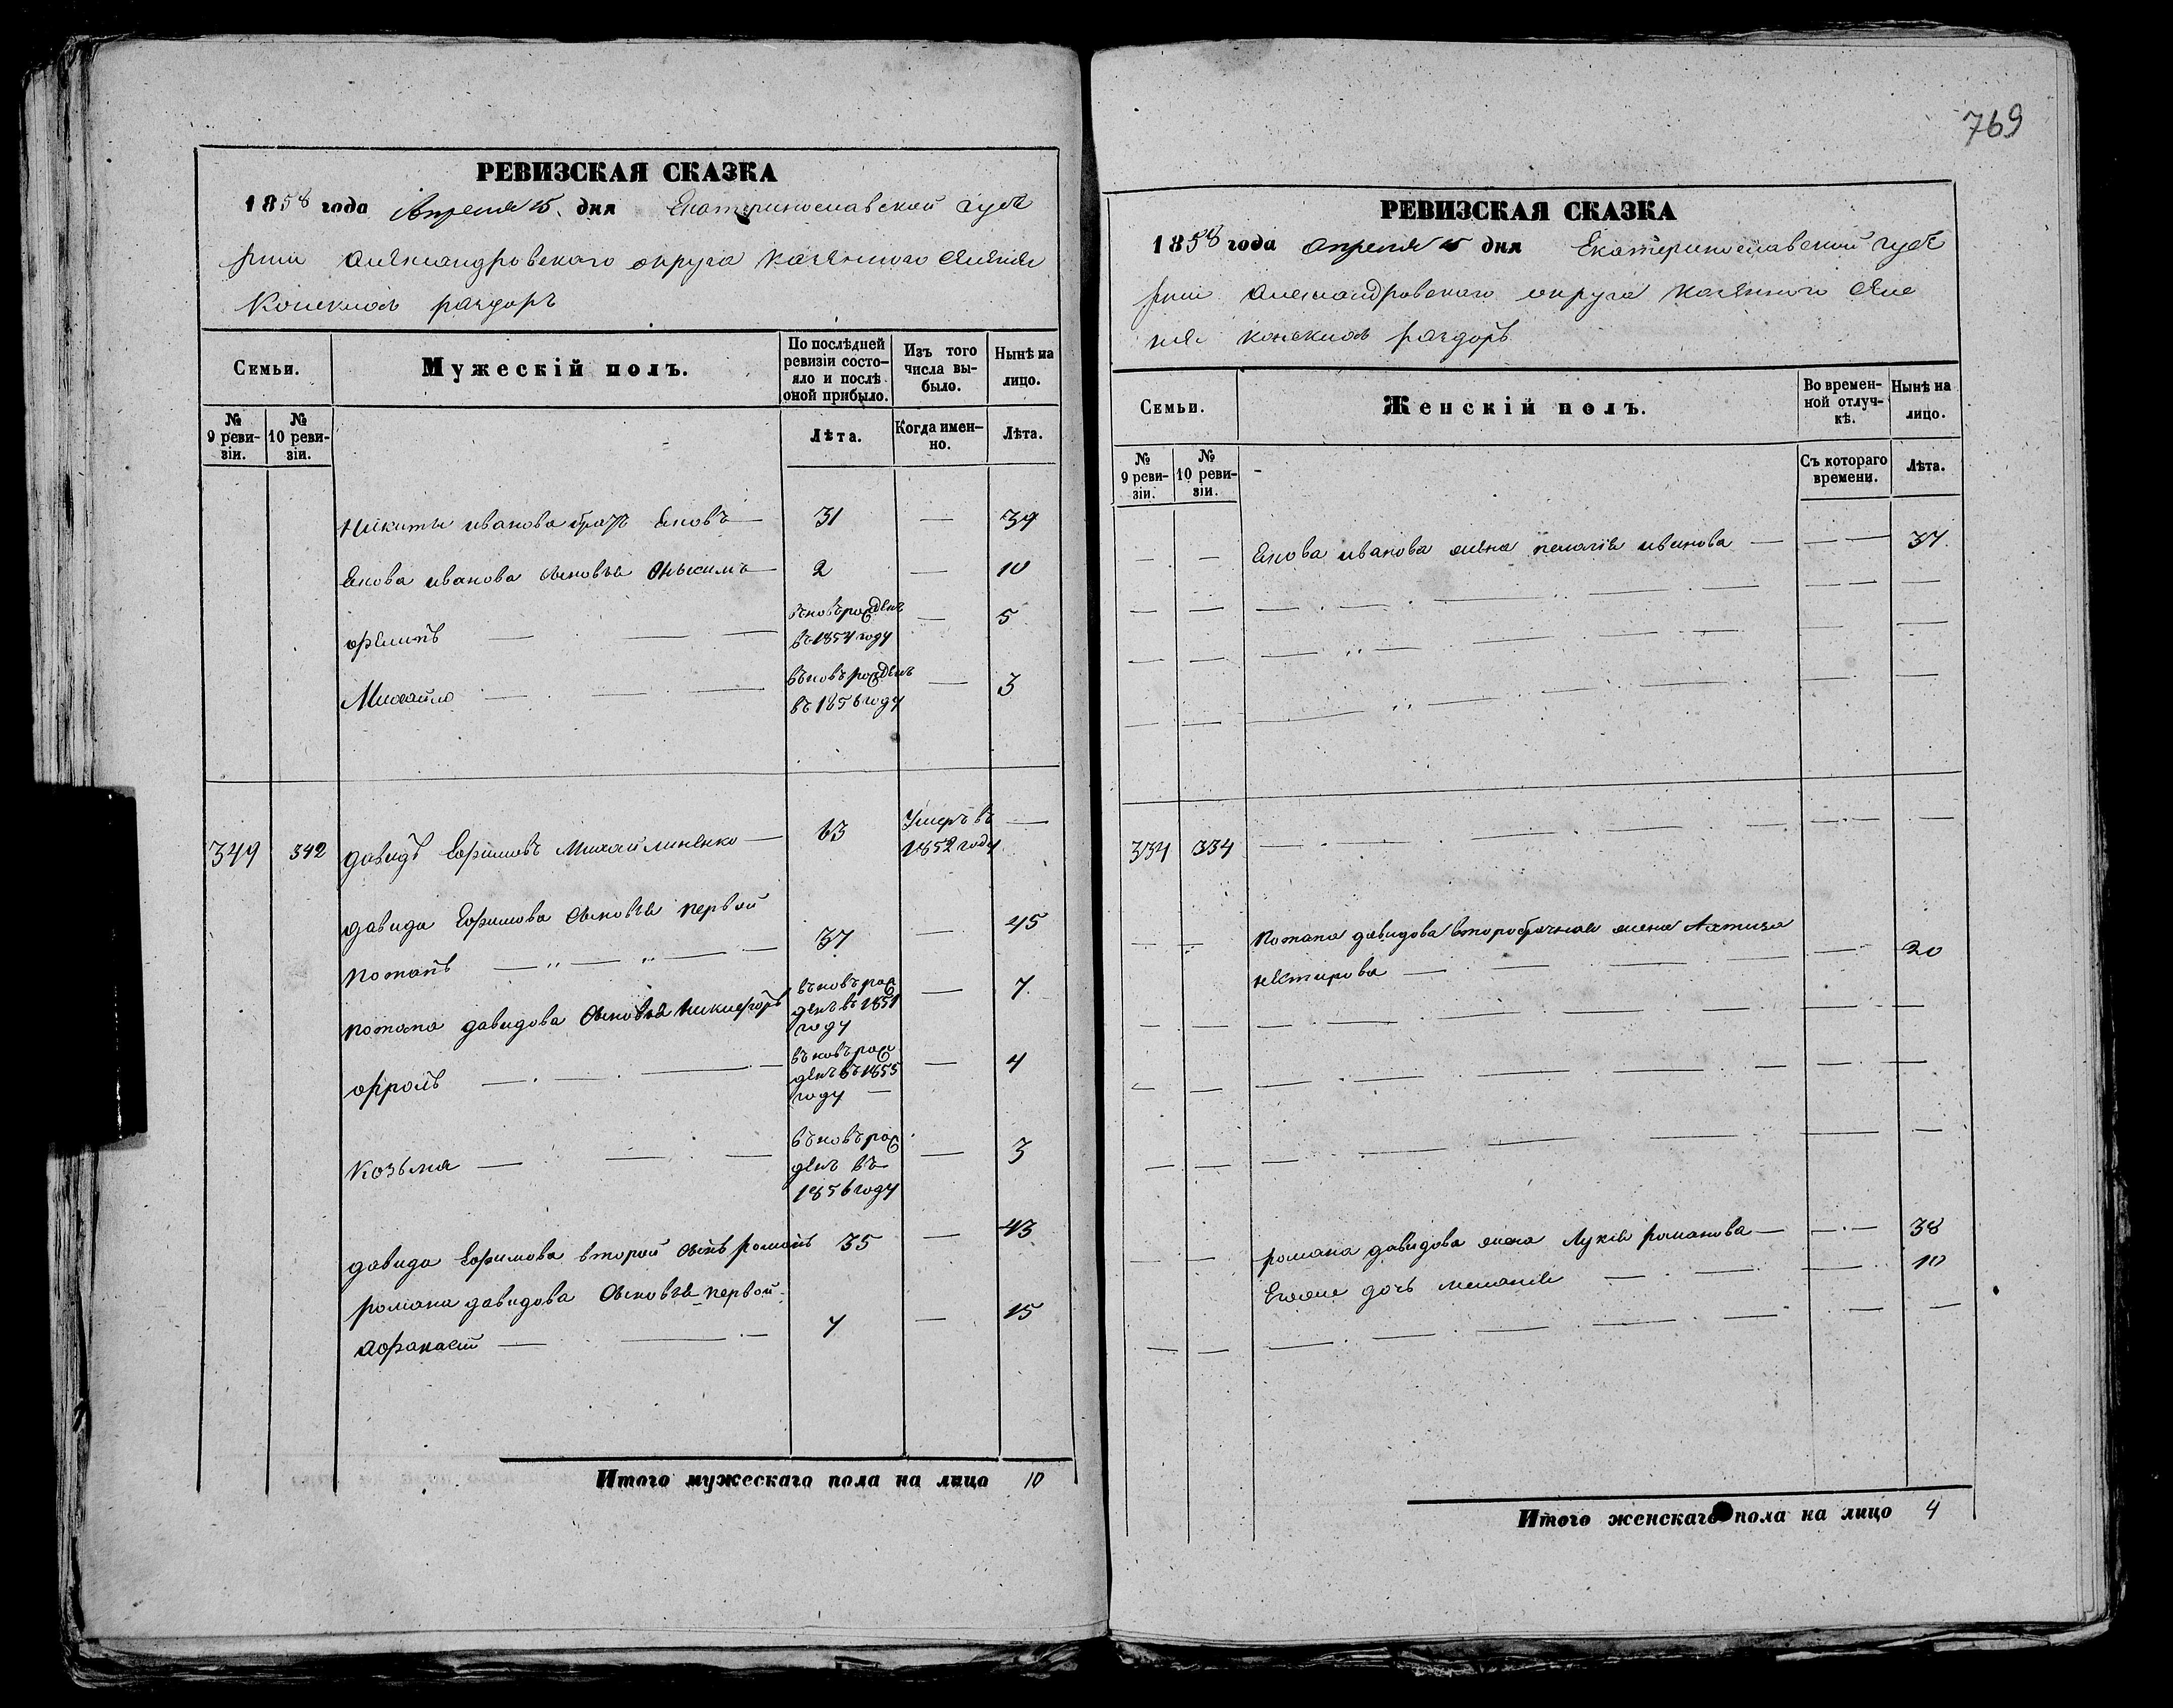 769
РЕВИЗСКАЯ СКАЗКА
1858 года Апреля 15 дня Екатеринославской губе
рнии Александровского округа казенного селения
Конскихъ раздоръ
Семьи.
Мужескій полъ.
По послѣдней ревизіи состо-
яло и послѣ оной прибыло.
Изъ того числа вы-
было.
Нынѣ на лицо.
№ 9 реви-
зіи.
№ 10 реви-
зіи.
Лѣта.
Когда имен-
но.
Лѣта.
Никиты иванова братъ Яковъ — 31 — 39
Якова иванова сыновья Онисимъ — 2 — 10
филипъ — — — вновь рожденъ въ 1854 году — 5
Михайло — — — вновь рожденъ въ 1856 году — 3
349 342 давидъ Ефимовъ Михайлиненко — 63 Умеръ въ 1852 году —
давида Ефимова Сыновья первой
потапъ — „ — „ — 37 — 45
потапа давидова Сыновья Никифоръ вновь рожденъ въ 1851 году — 7
фролъ — . — . — вновь рожденъ въ 1855 году — 4
Козьма — — — вновь рожденъ въ 1856 году — 3
давида Ефимова второй Сынъ романъ 35 — 43
романа давидова Сыновья первой
Афанасий — — 7 — 15
Итого мужескаго пола на лицо 10
РЕВИЗСКАЯ СКАЗКА
1858 года апреля 15 дня Екатеринославской губе
рнии Александровского округа казенного селе
ния конскихъ раздоръ
Семьи.
Женскій полъ.
Во времен-
ной отлуч-
кѣ.
Нынѣ на лицо.
№ 9 реви-
зіи.
№ 10 реви-
зіи.
Съ котораго времени.
Лѣта.
— — Якова иванова жена пелагия иванова — — — 37
334 334
— — Потапа давидова второбрачная жена
нестирова — — — 20
— — романа давидова жена Лукия романова — — 38
Егоже дочь мелания — — — 10
Итого женскаго пола на лицо 4